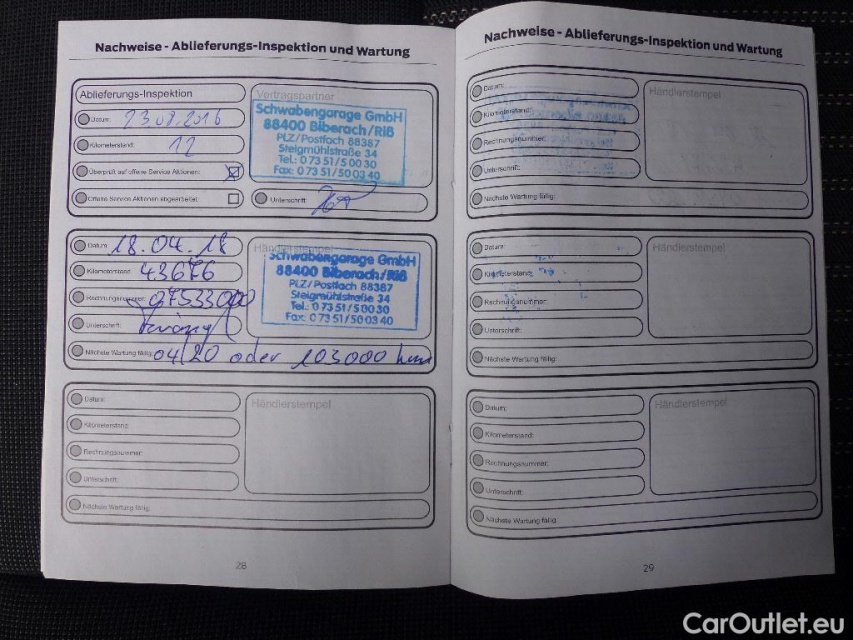 Nachweise - Ablieferungs-Inspektion und Wartung
Ablieferungs-Inspektion
Datum: 23.08.2016
Kilometerstand: 12
Überprüft auf offene Service Aktionen:
Offene Service Aktionen abgearbeitet:
Vertragspartner
Schwabengarage GmbH
88400 Biberach/Riß
PLZ/Postfach 88387
Steigmühlstraße 34
Tel.: 0 73 51/5 00 30
Fax: 0 73 51/5 00 3 40
Unterschrift:
Datum: 18.04.18
Kilometerstand: 43676
Rechnungsnummer: 97533000
Unterschrift:
Nächste Wartung fällig: 04/20 oder 103000 km
Händlerstempel
Schwabengarage GmbH
88400 Biberach/Riß
PLZ/Postfach 88387
Steigmühlstraße 34
Tel.: 0 73 51/5 00 30
Fax: 0 73 51/5 00 3 40
Datum:
Kilometerstand:
Rechnungsnummer:
Unterschrift:
Nächste Wartung fällig:
Händlerstempel
28
Nachweise - Ablieferungs-Inspektion und Wartung
Datum:
Kilometerstand:
Rechnungsnummer:
Unterschrift:
Nächste Wartung fällig:
Händlerstempel
Datum:
Kilometerstand:
Rechnungsnummer:
Unterschrift:
Nächste Wartung fällig:
Händlerstempel
Datum:
Kilometerstand:
Rechnungsnummer:
Unterschrift:
Nächste Wartung fällig:
Händlerstempel
29
CarOutlet.eu